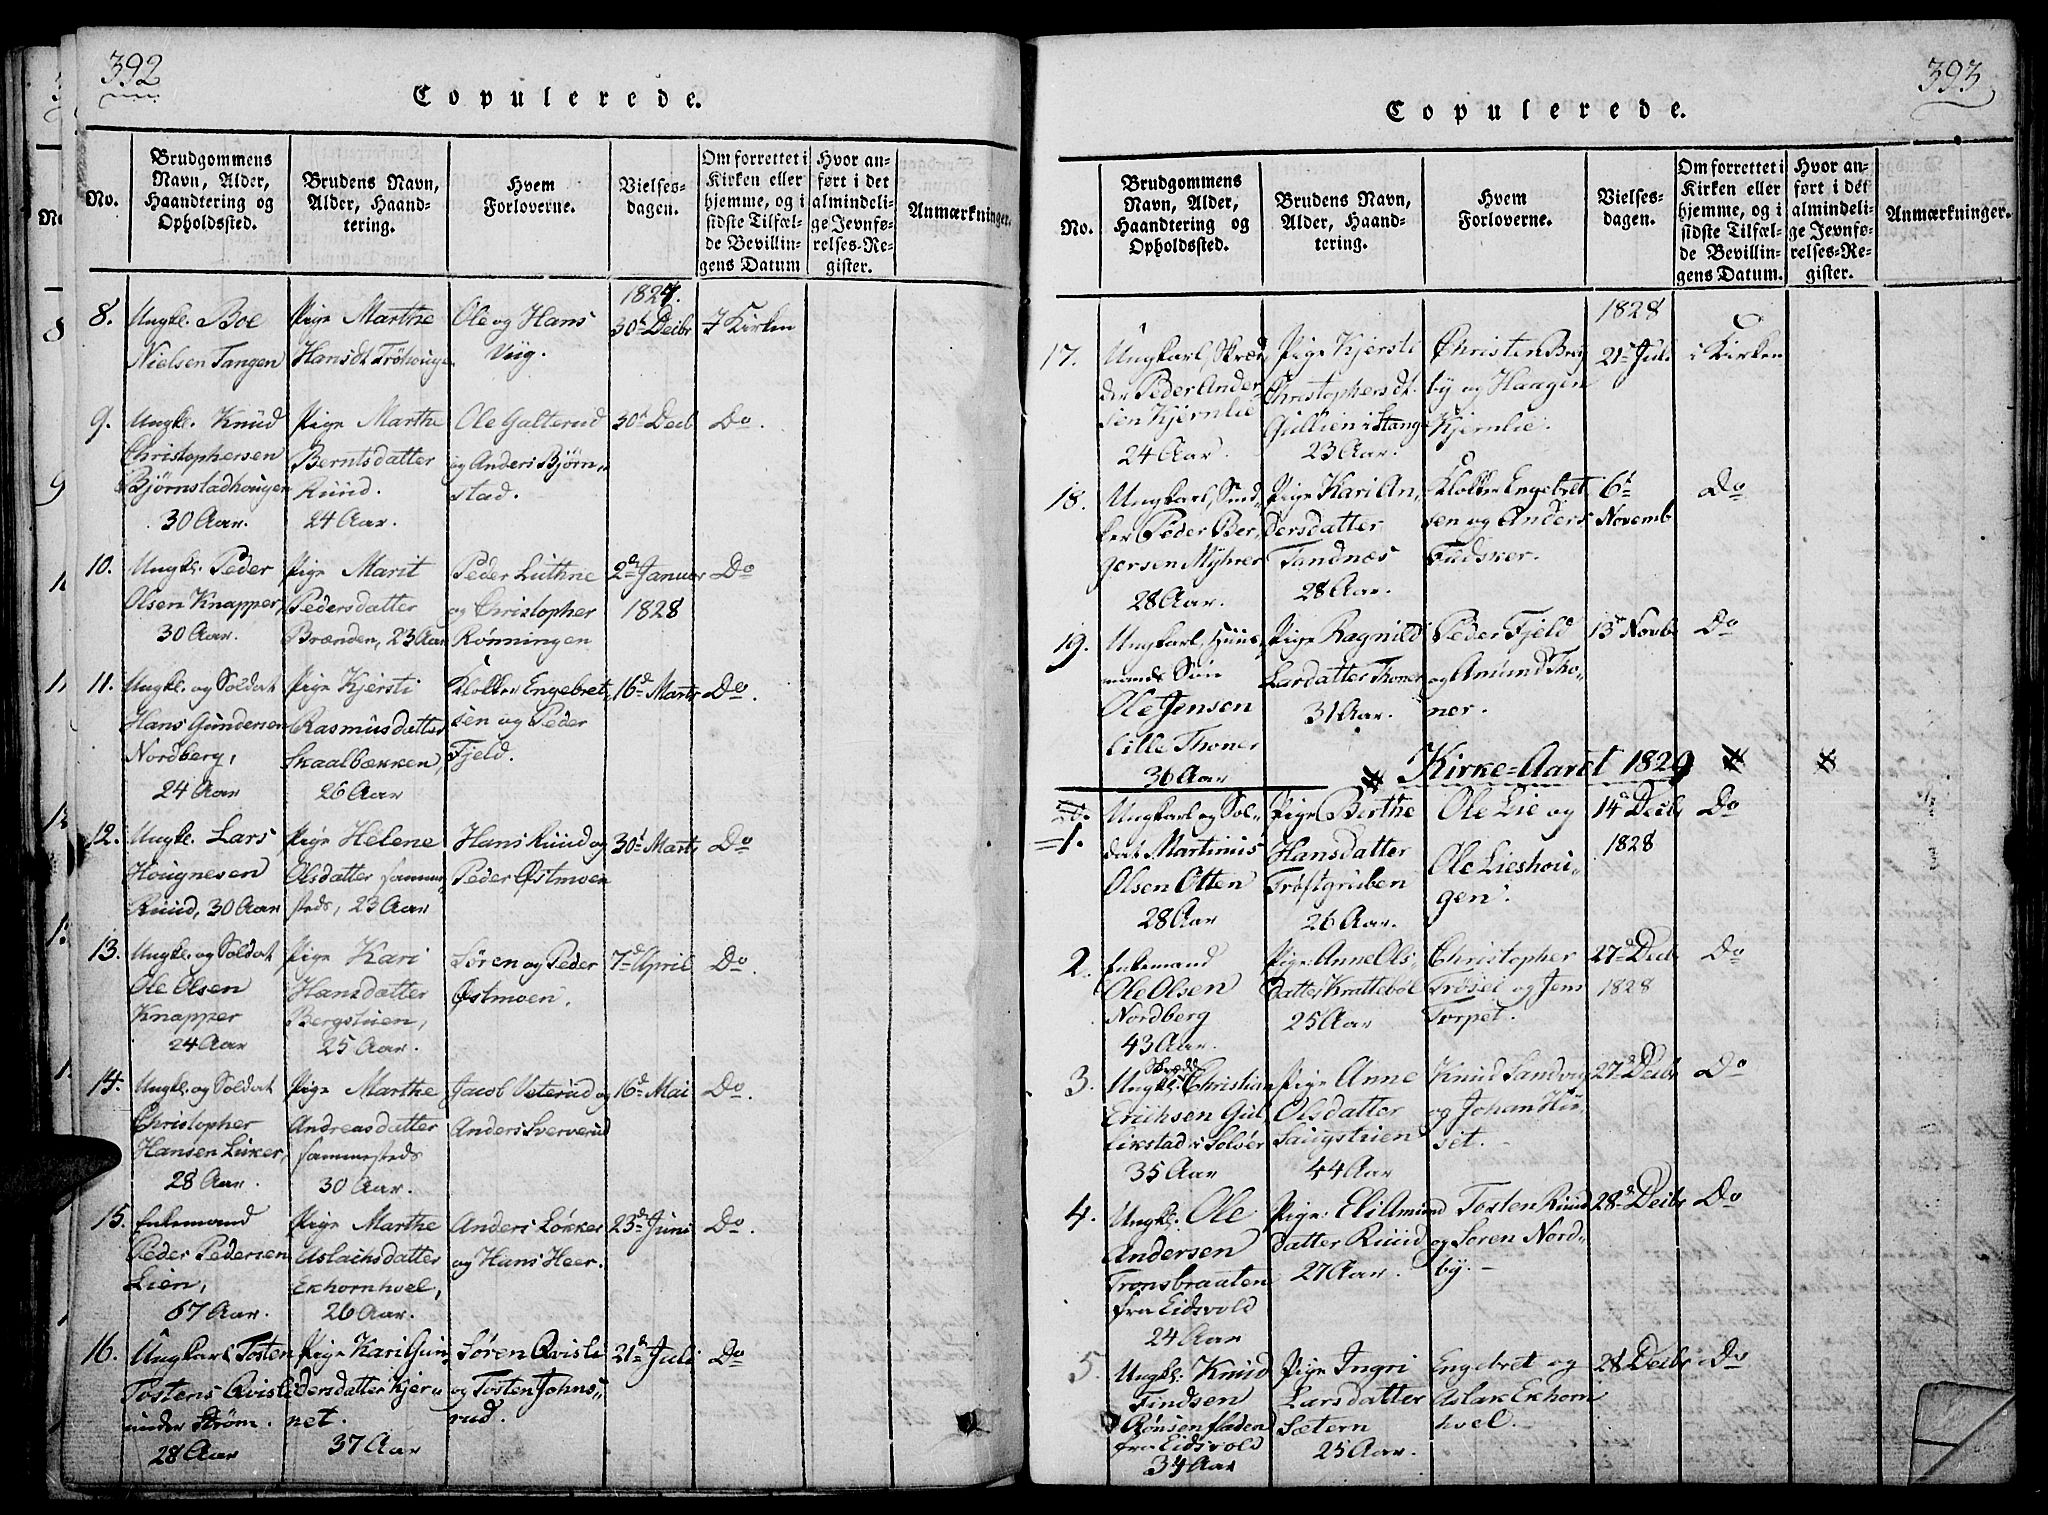 392
Copulerede.
No.
Brudgommens
Navn, Alder,
Haandtering og
Opholdssted.
Brudens Navn,
Alder, Haand-
tering.
Hvem
Forloverne.
Vielses-
dagen.
Om forrettet i
Kirken eller
hjemme, og i
sidste Tilfæl-
de Bevillin-
gens Datum
Hvor an-
ført i det
almindeli-
ge Jevnfø-
relses-Re-
gister.
Anmærkninger.
8.
Ungkl. Boe
Nielsen Tangen
Pige Marthe
Hansdt Tröhouge
Ole og Hans
Viig.
1827.
30t Decbr
I Kirken
9.
Ungkl. Knud
Christophersen
Bjørnstadhougen
30 Aar.
Pige Marthe
Berntsdatter
Ruud.
24 Aar.
Ole Galterud
og Anders Bjørn-
stad.
30t Decb
Do.
10.
Ungkl. Peder
Olsen Knapper,
30 Aar.
Pige Marit
Pedersdatter
Brænden, 23 Aar
Peder Luthne
og Christopher
Rønningen
2den Januar
1828
Do
11.
Ungkl. og Soldat
Hans Gundersen
Nordberg,
24 Aar
Pige Kjersti
Rasmusdatter
Skaalbækken,
26 Aar
Klokker Engebret-
sen og Peder
Fjeld.
16d Marts
Do.
12.
Ungkl. Lars
Hougnesen
Ruud, 30 Aar
Pige Helene
Olsdatter sammen-
steds, 23 Aar
Hans Ruud og
Peder Østmoen
30t Marts
Do
13.
Ungkl. og Soldat
Ole Olsen
Knapper
24 Aar
Pige Kari
Hansdatter
Bergstuen,
25 Aar.
Søren og Peder
Østmoen.
7d April
Do.
14.
Ungkl. og Soldat
Christopher
Hansen Luker,
28 Aar.
Pige Marthe
Andreasdatter
sammesteds
30 Aar.
Jacob Veterud og
Anders Sververud
16d Mai
Do.
15.
Enkemand
Peder Pedersen
Lien,
67 Aar.
Pige Marthe
Aslachsdatter
Ekhornhoel,
26 Aar.
Anders Løkker
og Hans Heer.
23d Juni
Do.
16.
Ungkarl Tosten
Tostens. Qvisli
under Strøm.
28 Aar
Pige Kari Gun-
dersdatter Kjer
net.
37 Aar
Søren Qvisli
og Tosten Johns-
rud.
21d Juli
Do
393
Copulerede.
No.
Brudgommens
Navn, Alder,
Haandtering og
Opholdssted.
Brudens Navn,
Alder, Haand-
tering.
Hvem
Forloverne.
Vielses-
dagen.
Om forrettet i
Kirken eller
hjemme, og i
sidste Tilfæl-
de Bevillin-
gens Datum.
Hvor an-
ført i det
almindeli-
ge Jevnfø-
relses-Re-
gister.
Anmærkninger.
17.
Ungkarl, Skræd-
der Peder Ander-
sen Kjernlie
24 Aar.
Pige Kjersti
Christophersdt.
Gullien i Stange
23 Aar.
Christen Brug
by og Haagen
Kjernlie.
1828
21de Juli
i Kirken
18.
Ungkarl, Sned-
ker Peder Ber-
gersen Myhrer
28 Aar.
Pige Kari An-
dersdatter
Sandnæs
28 Aar.
Klokker Engebret
sen og Anders
Fudsker.
6t
Novemb
Do
19.
Ungkarl, Huus-
mands Søn
Ole Jensen
Lille Thoner
36 Aar
Pige Ragnild
Larsdatter Thoner
31 Aar.
Peder Fjeld
og Amund Tho-
ner.
13de Novb
Do
Kirke-Aaret 1829
1.
Ungkarl og Sol-
dat Martinus
Olsen Otten
28 Aar
Pige Berthe
Hansdatter
Trøstgruben
26 Aar.
Ole Lie og
Ole Lieshou-
gen.
14d Decbr
1828
Do
2.
Enkemand
Ole Olsen
Nordberg
43 Aar.
Pige Anne Ols-
datter Krattebøl
25 Aar
Christopher
Trøsei og Jens
Torpet.
27d Decb
1828
Do
3.
Skrædd
Ungkl. Christian
Erichsen Gul-
likstad i Solöer
35 Aar
Pige Anne
Olsdatter
Saugstuen
44 Aar
Knud Sandvig
og Johan Hu-
set.
27d Decbr
Do
4.
Ungkl. Ole
Andersen
Tronsbraaten
fra Eidsvold
24 Aar
Pige Eli Amund
datter Ruud
27 Aar.
Tosten Ruud
og Soren Nord-
by.
28d Decbr
Do
5.
Ungkl. Knud
Findsen
Rønsenfladen
fra Eidsvold
34 Aar
Pige Ingri
Larsdatter
Sætern
25 Aar.
Engebret og
Aslak Ekhorn
hoel.
28 Decbr
Do